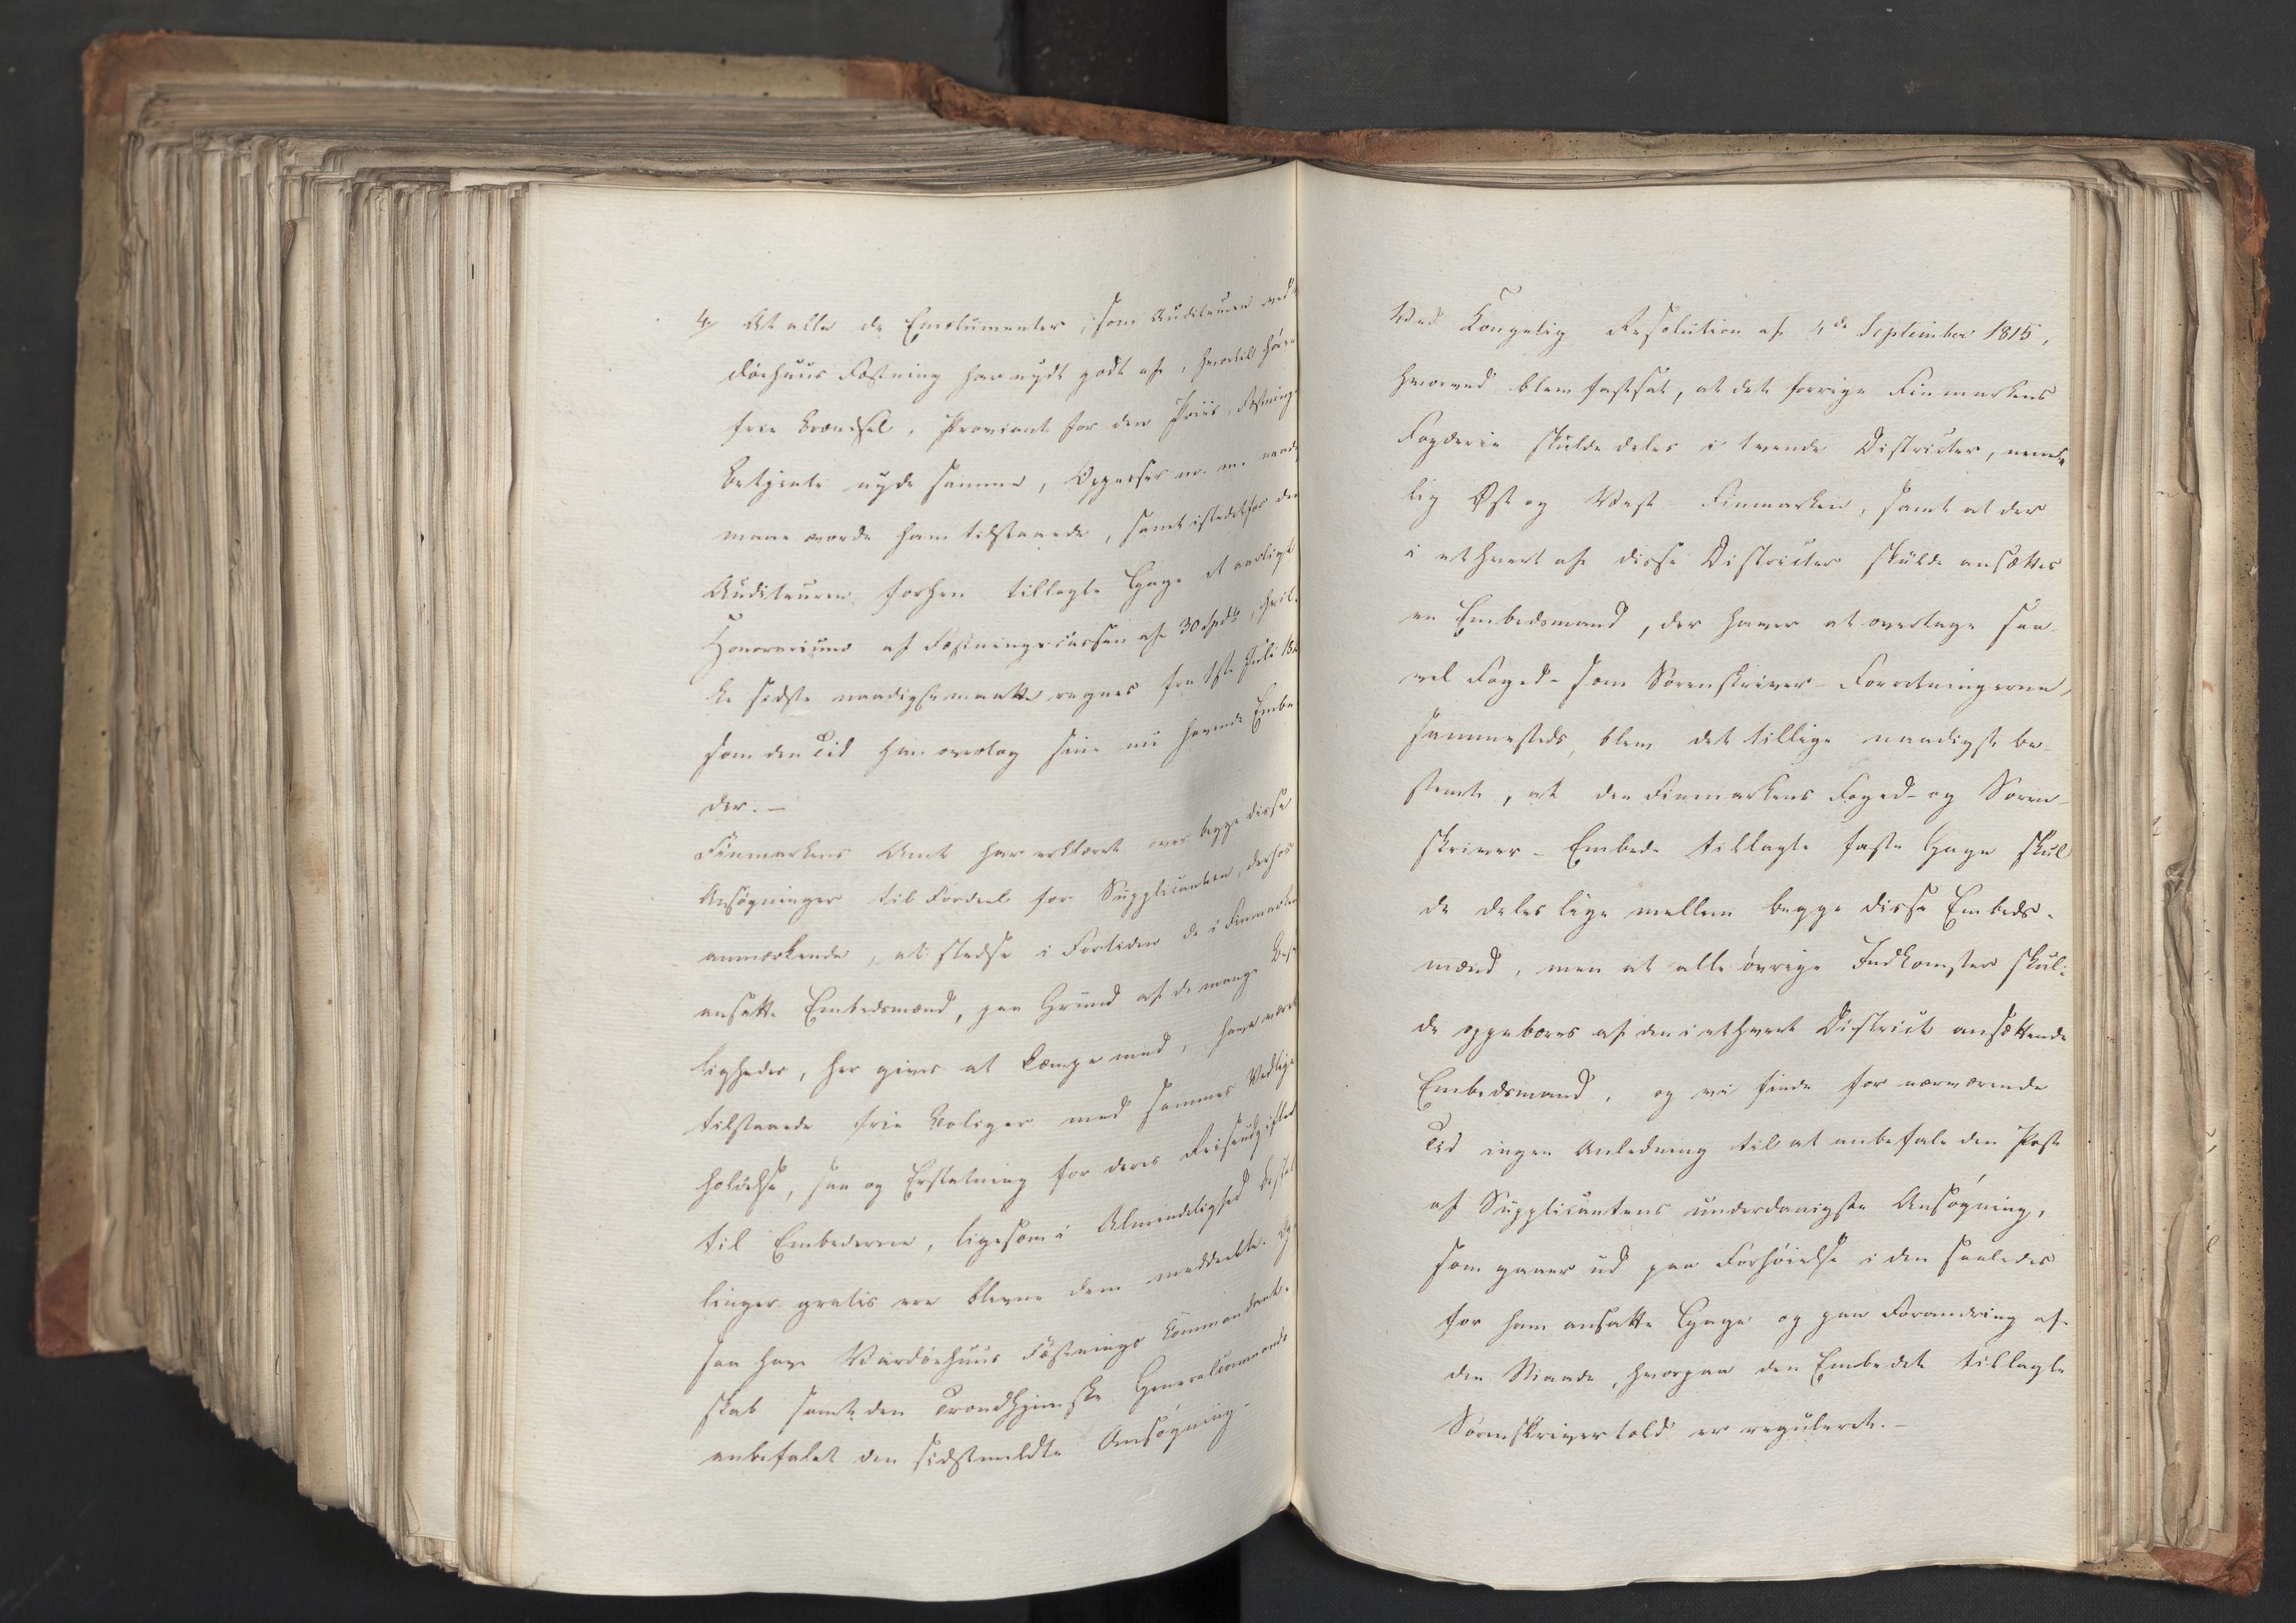 4/ At alle de Emolumenter, som Auditeuren ved
döehuus Fæstning har nydt godt af, hvortil hörer
frie Brændsel, Proviant for den Priis Fæstnings
betjente nyde samme, Oppasser m. m. naadigst
maae vorde ham tilstaaede, samt istedetfor den
Auditeuren forhen tillagte Gage et aarligt
Honorarium af Fæstningscassen af 30 Spd, hvil-
ke sidste naadigst maatte regnes fra 1ste Juli
som den Tid han overtog sine nu havende Embe
der. –
Finmarkens Amt har erklæret over begge disse
Ansögninger til Fordeel for Supplicanten, derhos
anmærkende, at stedse i Fortiden de i Finmarken
ansatte Embedsmænd, paa Grund af de mange Besv
ligheder, her gives at kæmpe med, have været
tilstaaede frie Boliger med sammes Vedlige
holdelse, saa og Erstatning for deres Reiseudgifter
til Embederne, ligesom i Almindelighed Bestal
linger gratis ere blevne dem meddeelte. Og
saa have Wardöehuus Fæstnings Commandant-
skab samt den Trondhjemske Generalcommando
anbefalet den sidstmeldte Ansögning. –
Ved Kongelig Resolution af 4de September 1815,
hvorved blev fastsat, at det forrige Finmarkens
Fogderie skulde deles i tvende Districter, nemm
lig Öst og Vest Finmarken, samt at der
i ethvert af disse Districter skulde ansættes
en Embedsmand, der haver at overtage saa-
vel Foged- som Sorenskriver-Forretningerne
sammesteds, blev det tillige naadigst be-
stemt, at den Finmarkens Foged- og Soren-
skriver-Embede tillagte faste Gage skul
de deles lige mellem begge disse Embeds-
mænd, men at alle övrige Indkomster skul-
de oppebæres af den i ethvert District ansættende
Embedsmand, og vi finde for nærværende
Tid ingen Anledning til at anbefale den Post
af Supplicantens underdanigste Ansögning,
som gaaer ud paa Forhöielse i den saaledes
for ham ansatte Gage og paa Forandring af
den Maade, hvorpaa den Embedet tillagte
Sorenskrivertold er reguleret. –